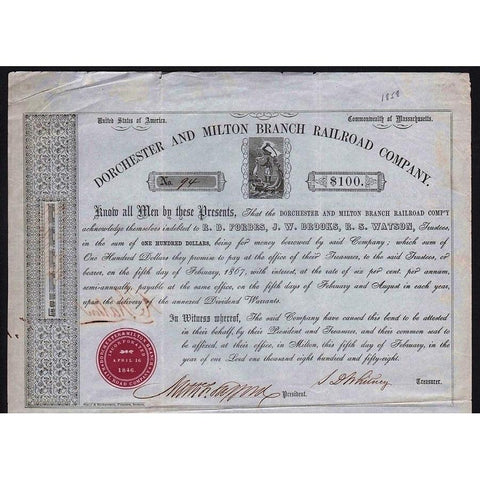 1858
United States of America.
Commonwealth of Massachusetts.
DORCHESTER AND MILTON BRANCH RAILROAD COMPANY.
No. 94
$100.
Know all Men by these Presents, That the DORCHESTER AND MILTON BRANCH RAILROAD COMP'Y
acknowledge themselves indebted to R. B. FORBES, J. W. BROOKS, R. S. WATSON, Trustees,
in the sum of ONE HUNDRED DOLLARS, being for money borrowed by said Company; which sum of
One Hundred Dollars they promise to pay at the office of their Treasurer, to the said Trustees, or
bearer, on the fifth day of February, 1867, with interest, at the rate of six per cent. per annum,
semi-annually, payable at the same office, on the fifth days of February and August in each year,
upon the delivery of the annexed Dividend Warrants.
In Witness whereof, The said Company have caused this bond to be attested
in their behalf, by their President and Treasurer, and their common seal to
be affixed, at their office, in Milton, this fifth day of February, in the
year of our Lord one thousand eight hundred and fifty-eight.
INCORPORATED
APRIL 16
1846.
RAIL ROAD COMPANY
President.
J D Whitney
Treasurer.